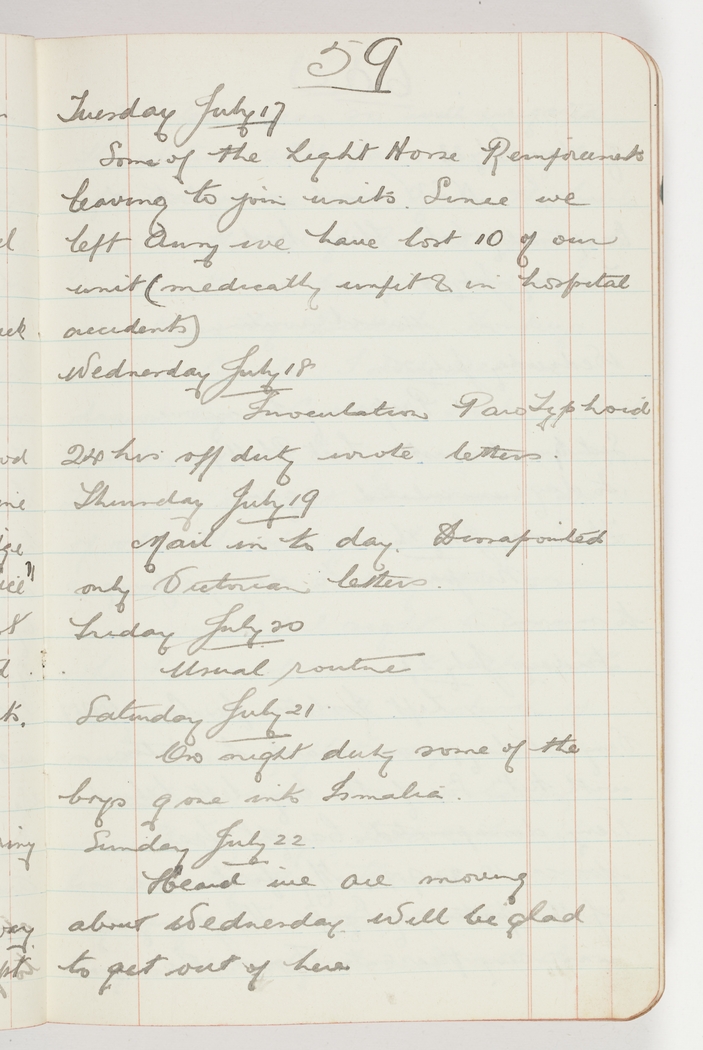 59
Tuesday July 17
Some of the Light Horse Reinforcements
leaving to join units. Since we
left Aust we have lost 10 of our
unit (medically unfit & in hospital
accidents)
Wednesday July 18
Inoculation ParaTyphoid
24 hrs off duty wrote letters.
Thursday July 19
Mail in to day. Dissapointed
only Victorian letters.
Friday July 20
Usual routine
Saturday July 21
On night duty some of the
boys gone into Ismalia.
Sunday July 22
Heard we are moving
about Wednesday Will be glad
to get out of here